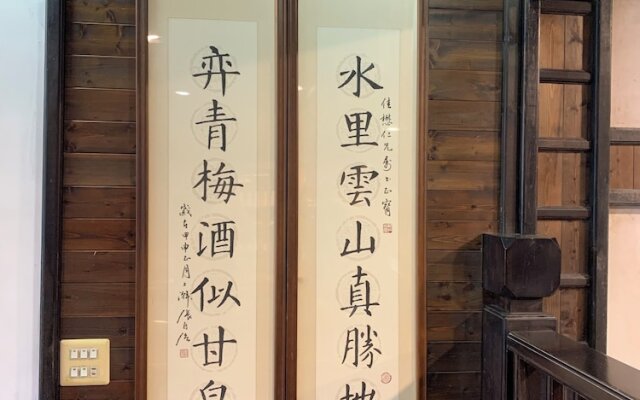 水里雲山真勝地
佳懋仁兄
弈青梅酒似甘泉
歲在甲申正月